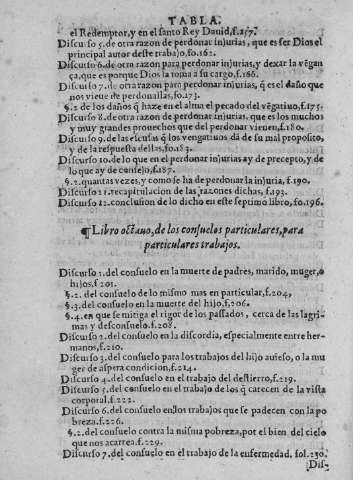 TABLA.
el Redemptor, y en el santo Rey Dauid, f.157.
Discurso 5. de otra razon de perdonar injurias, que es ser Dios el
principal autor deste trabajo, fo.162.
Discurso 6. de otra razon para perdonar injurias, y dexar la vẽgan
ça, que es porque Dios la toma a su cargo, f.166.
Discurso 7. de otra razon para perdonar injurias, q̃ es el daño que
nos viene de perdonallas, fo.173.
§.2 de los daños q̃ haze en al alma el pecado del vẽgatiuo, f.175.
Discurso 8. de otra razon de perdonar injurias, que es los muchos
y muy grandes prouechos que del perdonar vienen, f.180.
Discurso 9. de las escusas q̃ los vengatiuos dã de su mal proposito,
y de la respuesta dellas, fo.183.
Discurso 10. de lo que en el perdonar injurias ay de precepto, y de
lo que ay de consejo, f.187.
§.2. quantas vezes, y como se ha de perdonar la injuria, f.190.
Discurso 11. recapitulacion de las razones dichas, f.193.
Discurso 12. conclusion de lo dicho en este septimo libro, fo.196.
¶ Libro octauo, de los consuelos particulares, para
particulares trabajos.
Discurso 1. del consuelo en la muerte de padres, marido, muger, o
hijos, f.201.
§.2. del consuelo de lo mismo mas en particular, f.204,
§.3. del consuelo en la muerte del hijo, f.206.
§.4. en que se mitiga el rigor de los passados, cerca de las lagri-
mas y desconsuelo. f.208.
Discurso 2. del consuelo en la discordia, especialmente entre her-
manos, f.210.
Discurso 3. del consuelo para los trabajos del hijo auieso, o la mu
ger de aspera condicion, f.214.
Discurso 4. del consuelo en el trabajo del destierro, f.219.
Discurso 5. del consuelo en el trabajo de los q̃ carecen de la vista
corporal. f.222.
Discurso 6. del consuelo enlos trabajos que se padecen con la po
breza. f.226.
§.2. del consuelo contra la misma pobreza, por el bien del cielo
que nos acarrea. f.229.
Discurso 7. del consuelo en el trabajo de la enfermedad. fol.230.
Dis-